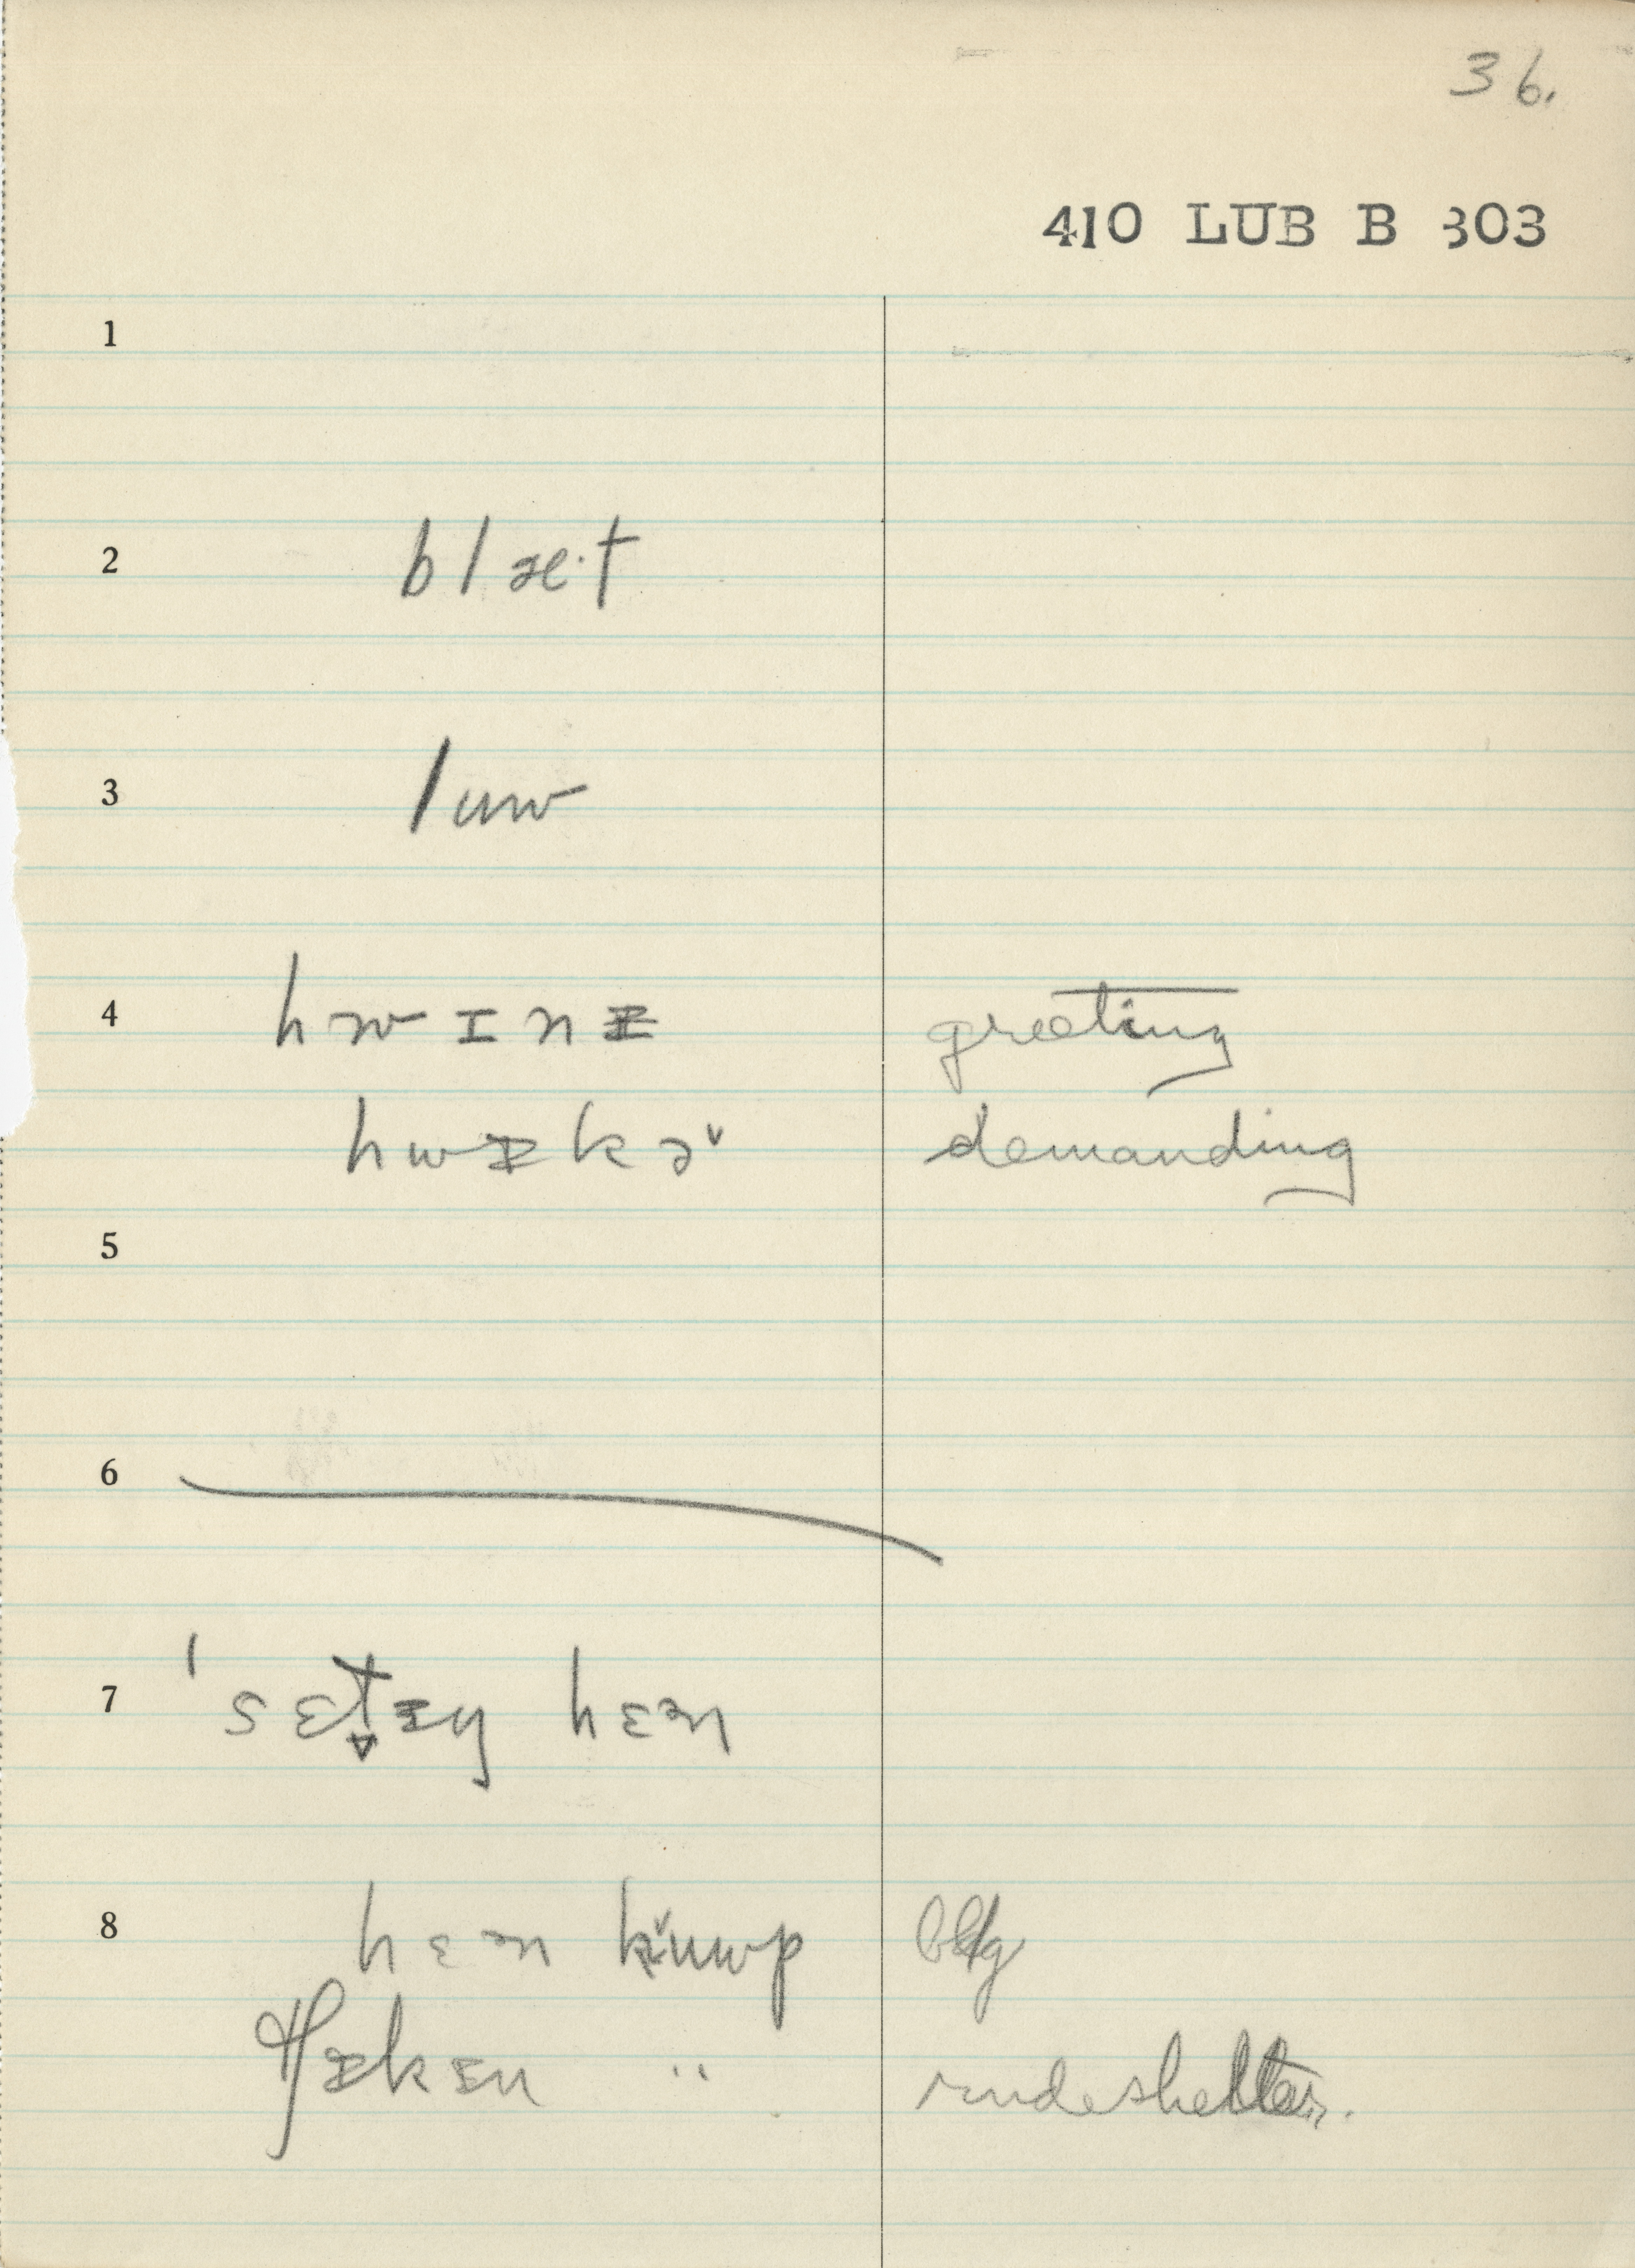 36.
410 LUB B 303
1
2 blæ·t
3 luw
4 hwɪnᵻ greeting
hwᵻkəˇ demanding
5
6
7 ˈsɛt̬ᵻy hɛən
8 hɛən ǩuwp bldg
ᵻkᵻn " rude shelter.